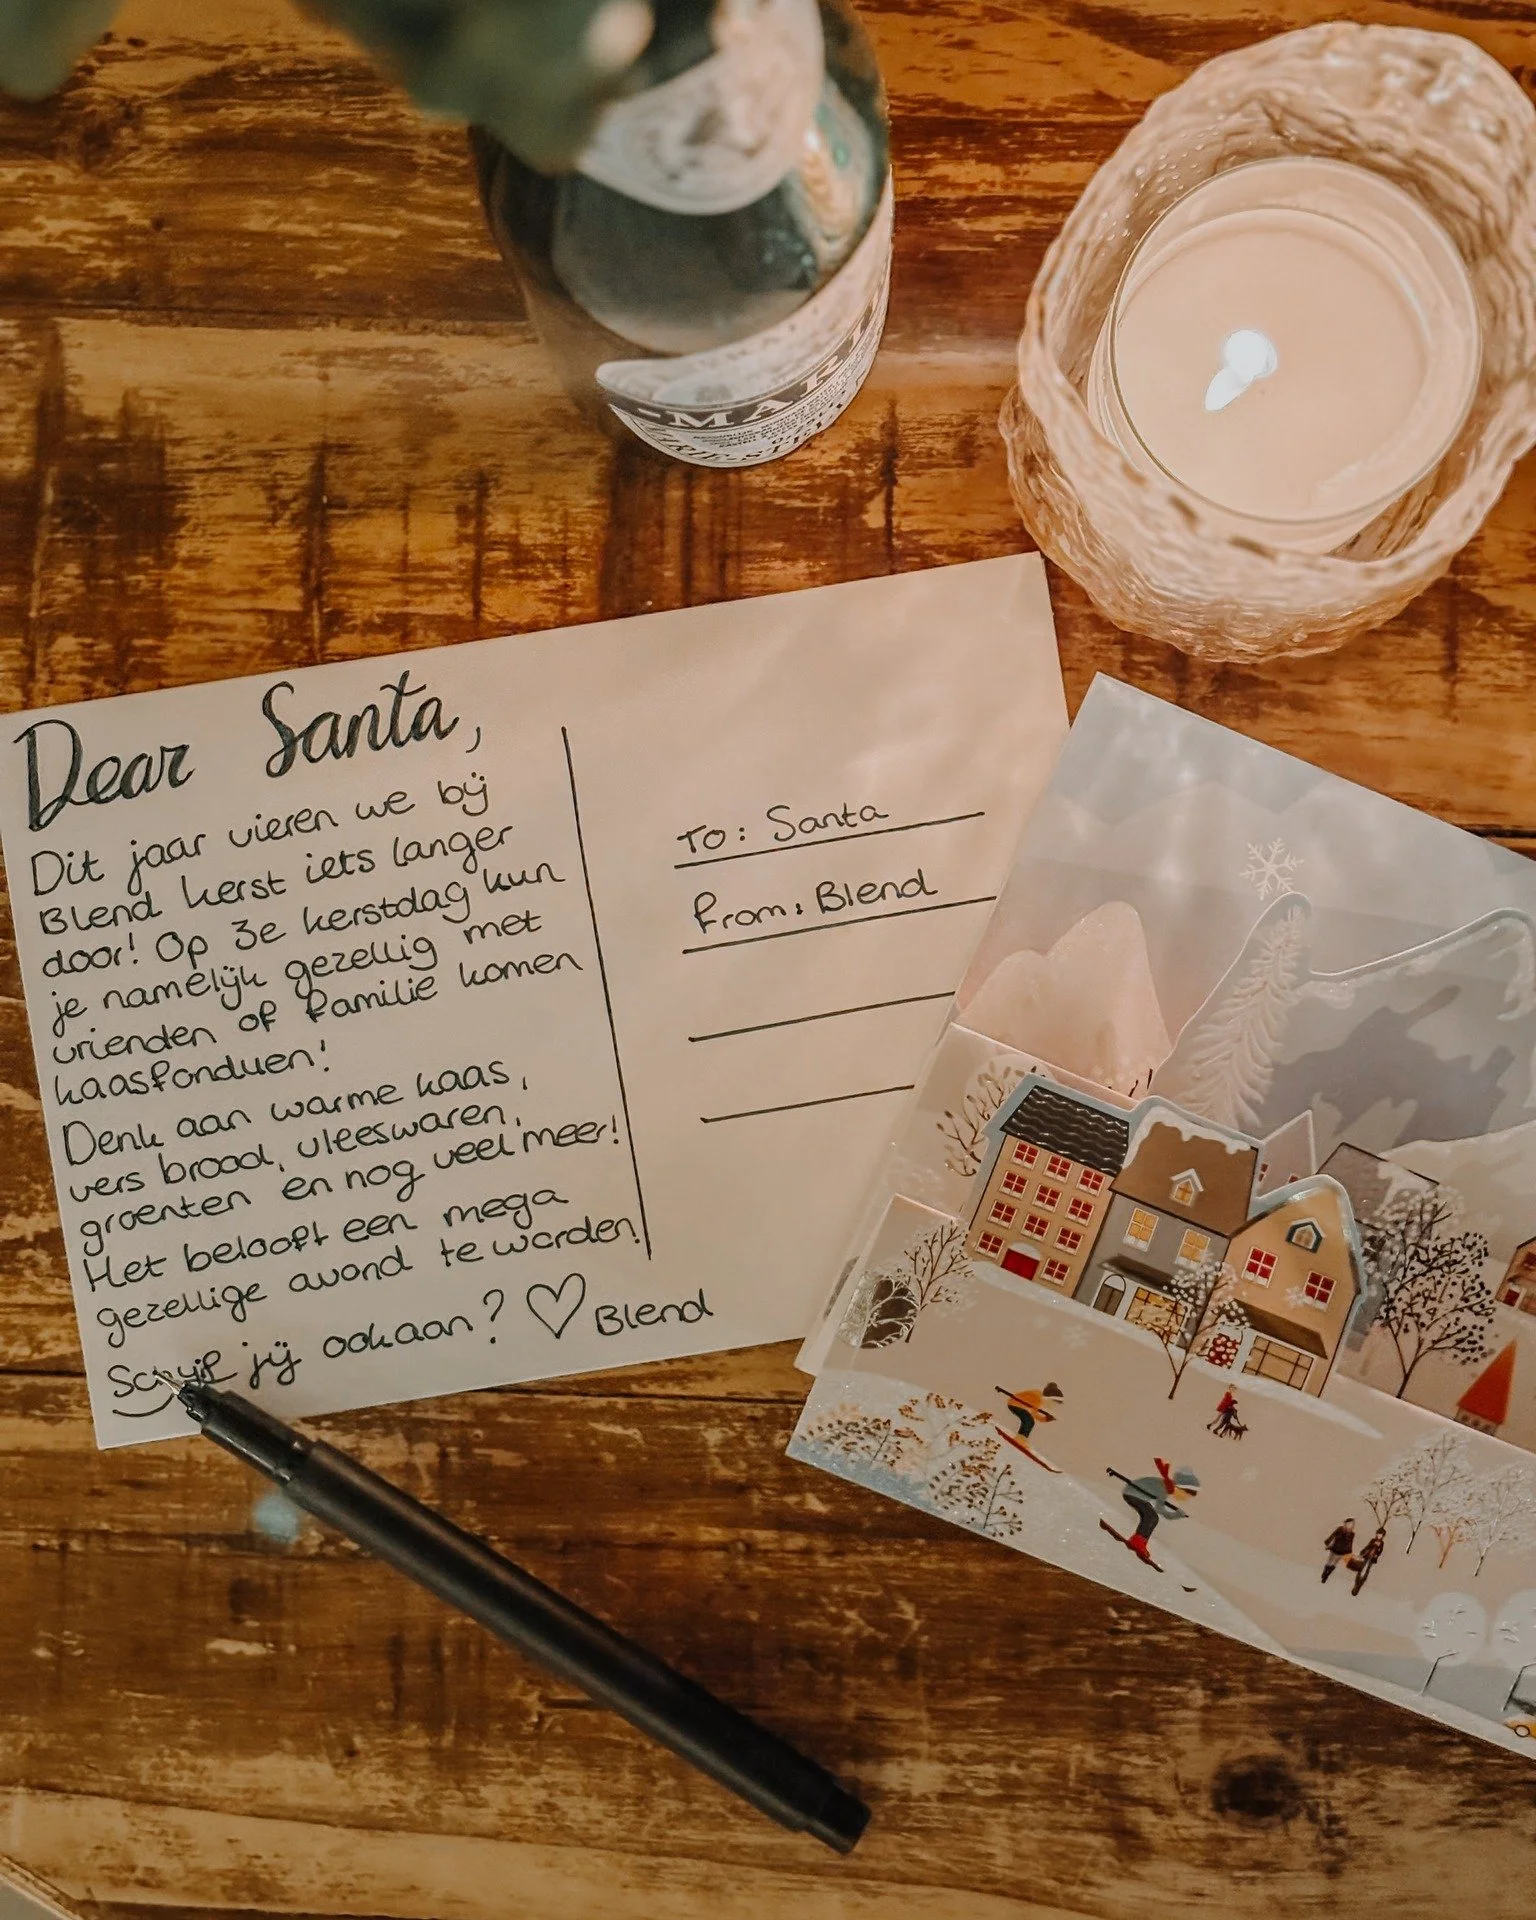 -MAR
Dear Santa,
Dit jaar vieren we bij
Blend kerst iets langer
door! Op 3e kerstdag kun
je namelijk gezellig met
vrienden of familie komen
kaasfonduen!
Denk aan warme kaas,
vers brood, vleeswaren,
groenten en nog veel meer!
Het belooft een mega
gezellige avond te worden!
Schuif jij ook aan? ♡ Blend
To: Santa
From: Blend